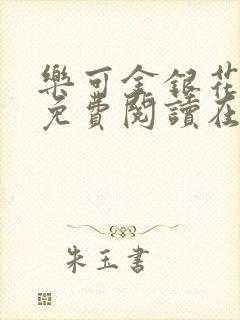 樂可金銀花
免費閱讀在
朱玉書